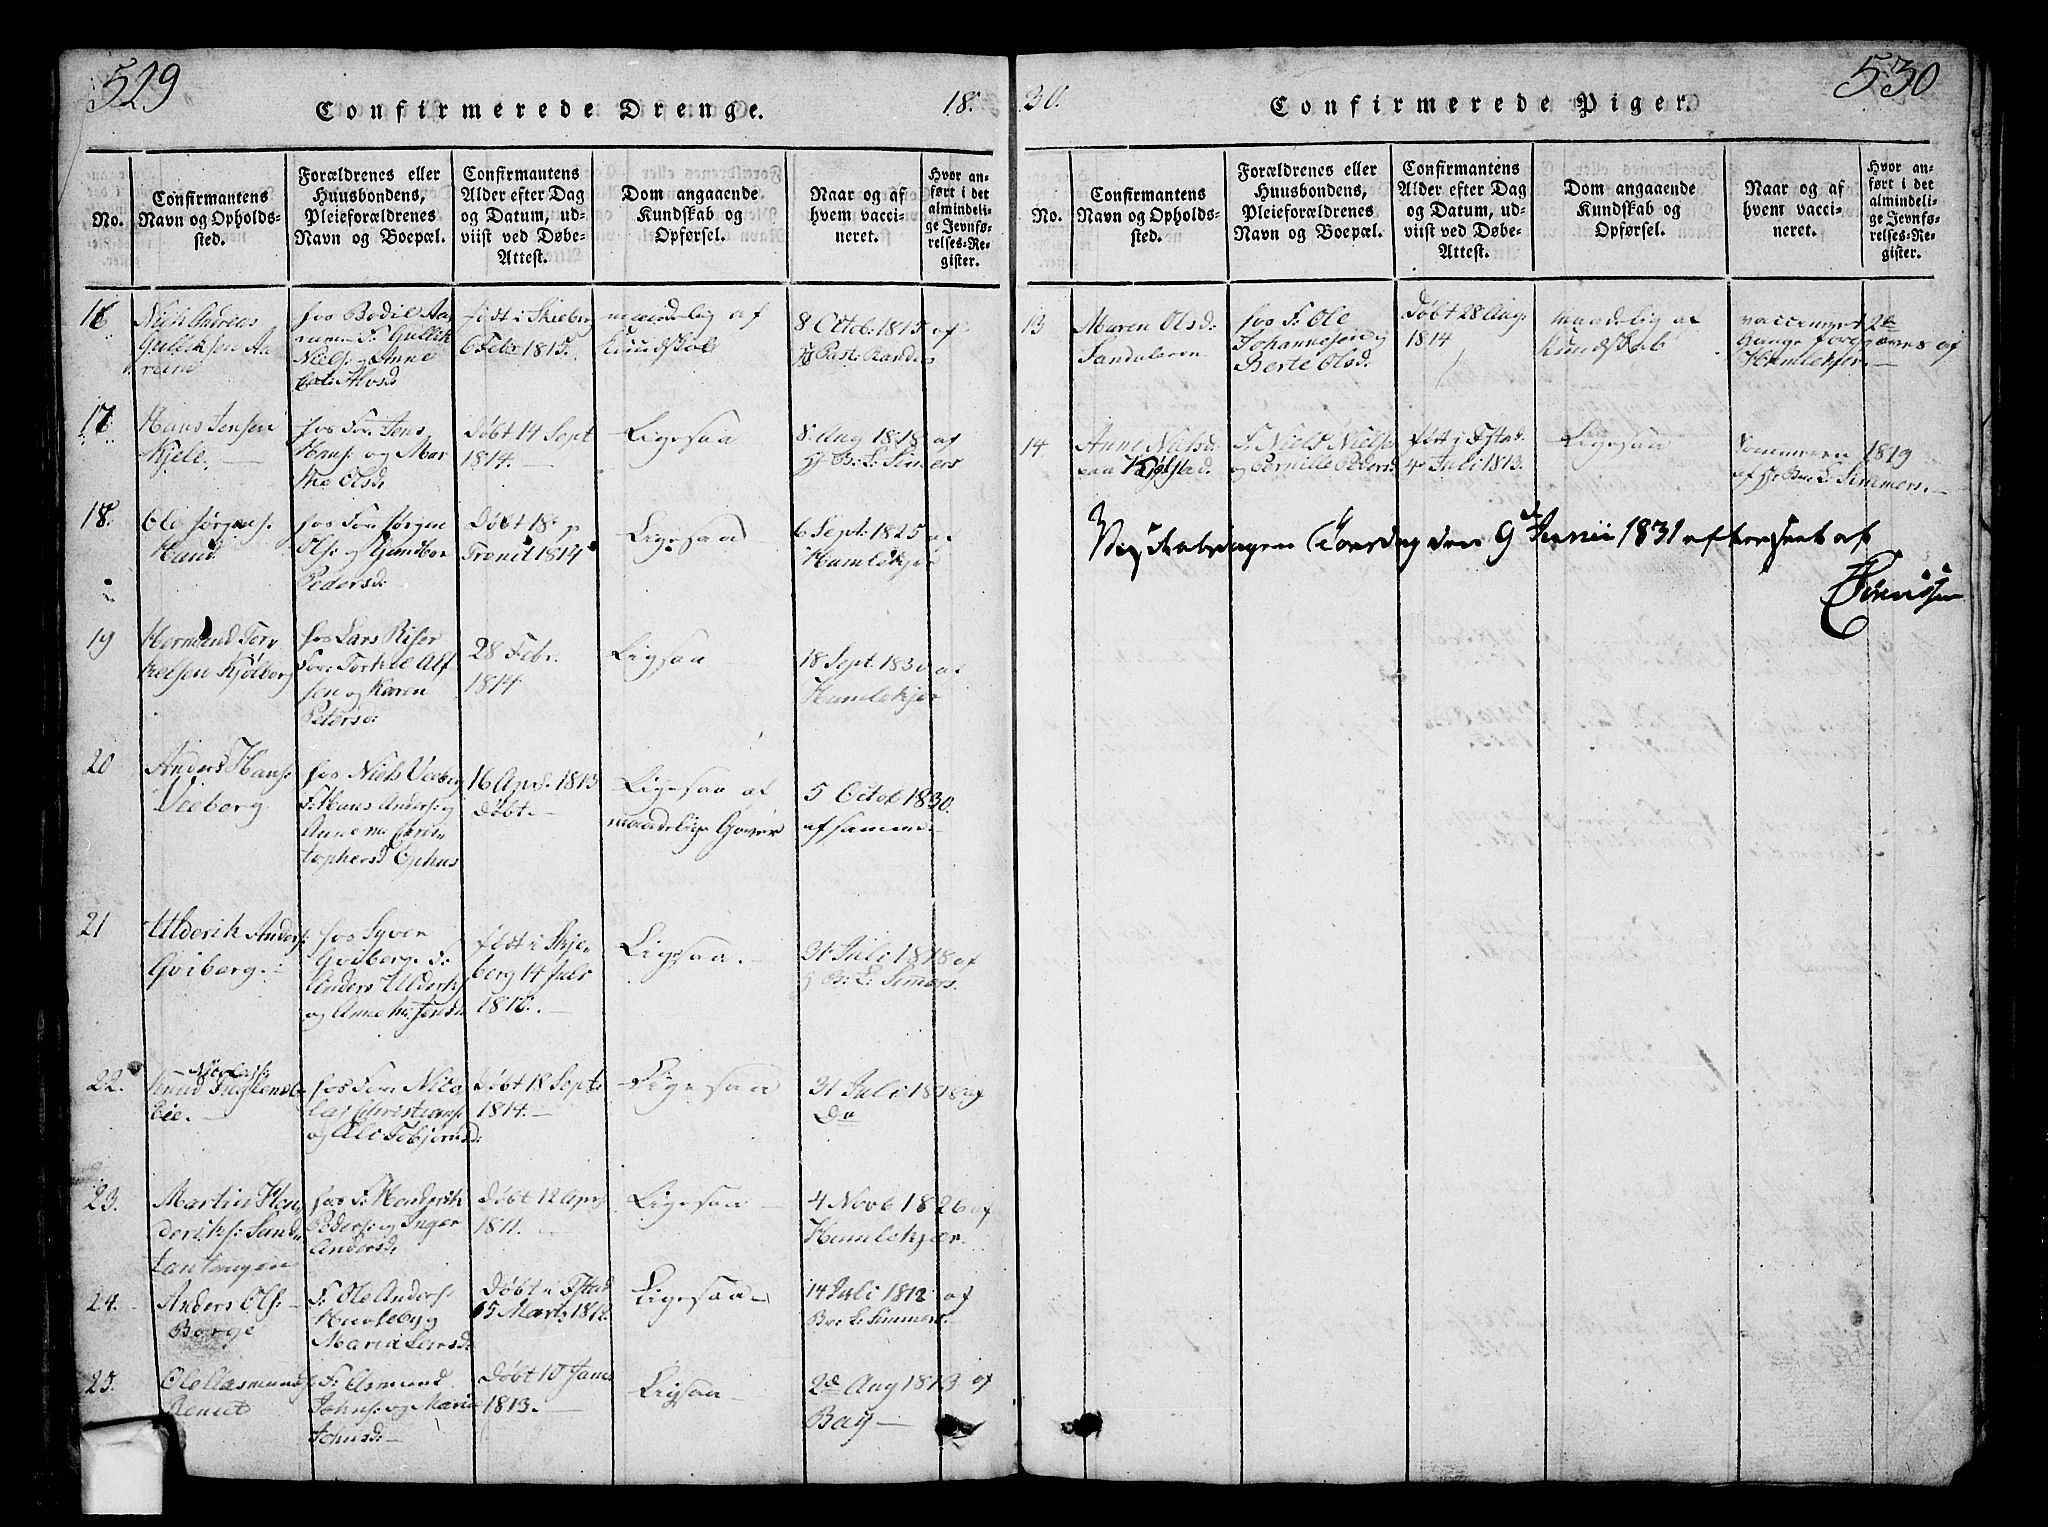 529
Confirmerede Drenge.
18
No.
Confirmantens Navn og Opholds-sted.
Forældrenes eller Huusbondens, Pleieforældrenes Navn og Boepæl.
Confirmantens Alder efter Dag og Datum, ud-viist ved Døbe-Attest.
Dom angaaende Kundskab og Opførsel.
Naar og af hvem vacci-neret.
Hvor an-ført i det almindeli-ge Jevnfø-relses-Re-gister.
16
Gulliksen Aa
hos Bodil Aa
F. Gullik
Niels: og Anne
født i Skieberg
6 Febr 1815.
maadelig af
Kundskab
8 Octob: 1815 af
Past: Randes
17
Hans Jensen
Kjele.
hos For. Jens
Hans: og Mar
the Olsd:
Døbt 14 Sept
1814.
Ligesaa
8 Aug 1818 af
B: L: Simers
18.
Ole Jørgens:
Haud
hos For Jørgen
Ols: og Gundbor
Pedersd:
Døbt 18 p
Trenit 1814
Ligesaa
6 Sept: 1825 af
Hamlekjer
19
Hermand Tor
kelsen Kjølberg
hos Lars Riser
For: Torkel Alf
sen og Karen
Pedersd:
28 Febr.
1814
Ligsaa
18 Sept: 1830 af
Hamlekjer
20
Anders Hans:
Veeborg.
hos Niels Veeborg
F: Hans Anders: og
Anne Ma: Chris
tophersd
16 Apr: 1813
Døbt
Ligesaa af
maadelige Gaver
5 Octob 1830.
af samme
21
Ulderik Anders:
Guiberg.
hos Syver
Guiberg. F:
Anders Ulderks
og Anne Ma: Jensd
født i Skje
berg 14 Juli
Ligesaa.
31 Juli 1818 af
B: L: Simers.
22.
Nicolais:
Knud
Eie.
hos For. Nico
lai Christians:
og Ale Tobjørnsd:
Døbt 18 Sept
1814.
Ligesaa
31 Juli 1818 af
Do
23.
Martin Hen
deriks: Sand
tangen
hos F: Hendrik
Peders: og Inger
Andersd:
Døbt 12 Apr
1811.
Ligesaa
4 Novb 1826 af
Hamlekjær
24.
Anders Ols:
Borge
F: Ole Anders:
Maria Larsd:
Døbt i Fstad
15 Marts 1812
Ligesaa
14 Juli 1812 af
B: L: Simmers
25.
Ole Aasmunds:
F: Asmund
Johns: og Maria
Johnsd:
Døbt 10 Janu
1813.
Ligsaa
2de Aug 1813 af
Bay
530
Confirmerede Piger.
30.
No.
Confirmantens Navn og Opholds-sted.
Forældrenes eller Huusbondens, Pleieforældrenes Navn og Boepæl.
Confirmantens Alder efter Dag og Datum, ud-viist ved Døbe-Attest.
Dom angaaende Kundskab og Opførsel.
Naar og af hvem vacci-neret.
Hvor an-ført i det almindeli-ge Jevnfø-relses-Re-gister.
13
Maren Olsd:
hos F: Ole
Johannesen og
Berte Olsd:
Døbt 28 Aug:
1814
maadelig af
Kundskab
vaccineret 2de
Gange forgjæves af
Hamlekjer.
14.
Anne Nielsd:
Kjølstad.
F: Niels Niels:
og Pernille Pedersd:
født i Fstad
4 Juli 1813.
Ligesaa
Sommeren 1819
af Hr B: L: Simmers.
Torsdag den 9de Junii 1831 efterseet af
Sørenssen